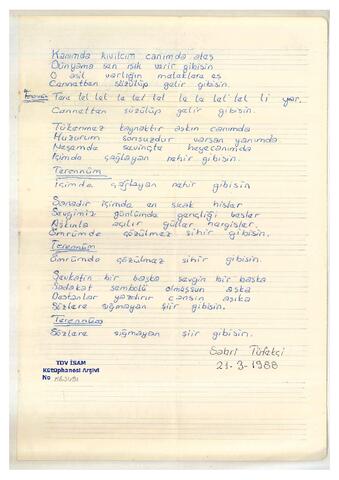 Kanımda kıvılcım canımda ateş
Dünyama sen ışık verir gibisin
O asil varlığın meleklere eş
Cennetten süzülüp gelir gibisin.
Terennüm Tere lel lel le lel lel le le lel lel li yar.
Cennetten süzülüp gelir gibisin.
Tükenmez kaynaktır aşkın canımda
Huzurum sonsuzdur varsan yanımda
Neşemde sevinçte heyecanımda
İçimde çağlayan nehir gibisin.
Terennüm
İçimde çağlayan nehir gibisin
Sanadır içimde en sıcak hisler
Sevgimiz gönlümde gençliği besler
Aşkınla açılır güller nergisler.
Ömrümde çözülmez sihir gibisin.
Terennüm
Ömrümde çözülmez sihir gibisin.
Şevkatin bir başka sevgin bir başka
Sadakat sembolü olmuşsun aşka
Destanlar yazdırır cansın aşka
Sözlere sığmayan şiir gibisin.
Terennüm
Sözlere sığmayan şiir gibisin.
Sabri Tüfekçi
21-3-1988
TDV İSAM
Kütüphanesi Arşivi
No